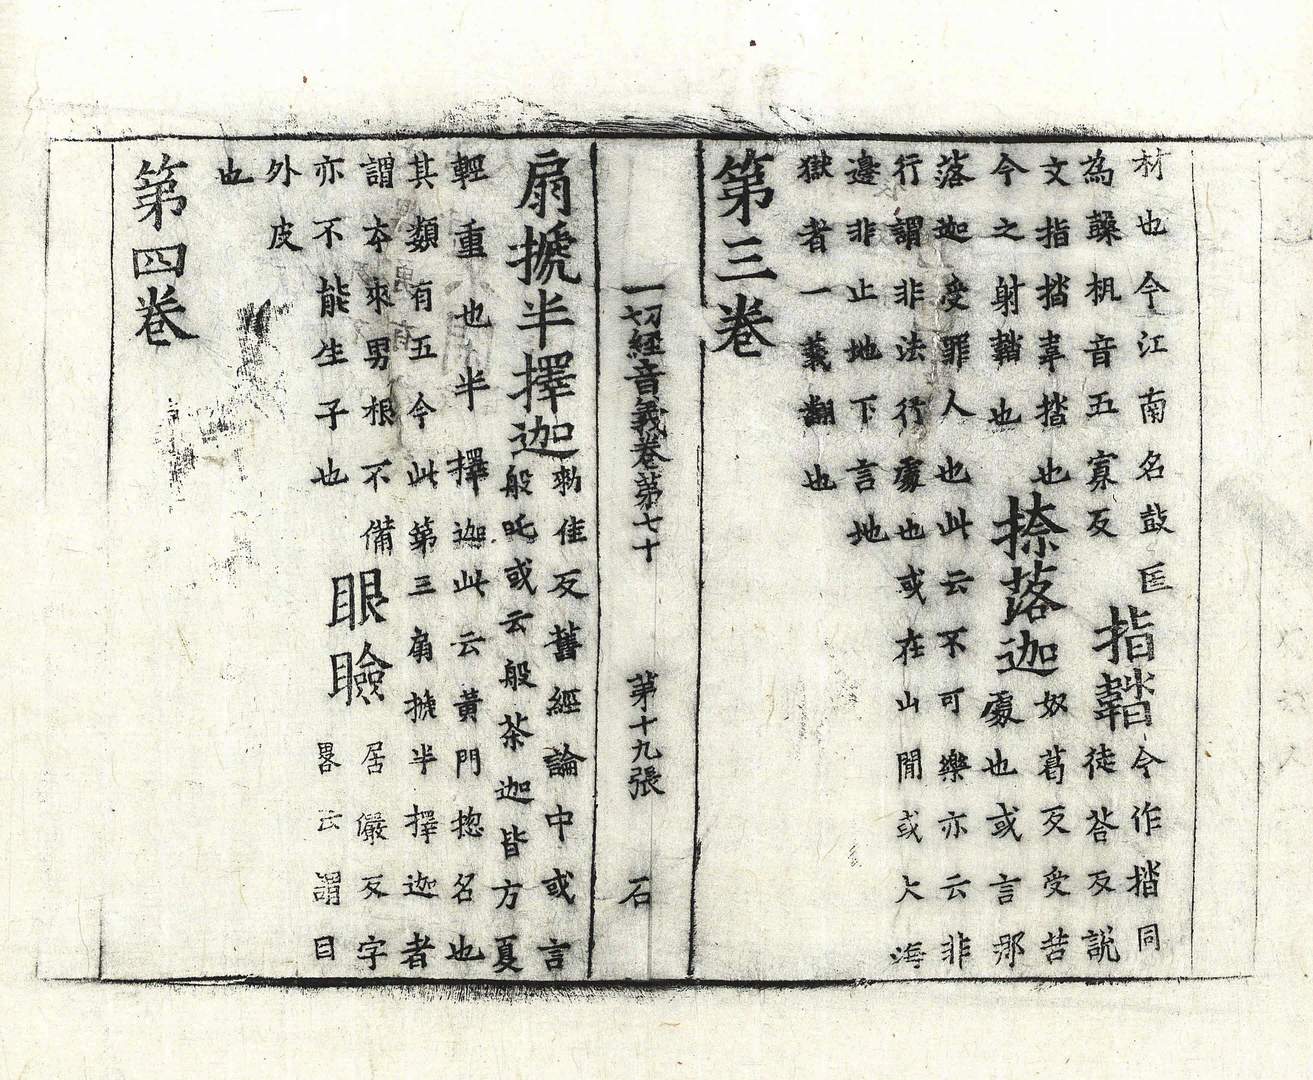 材也今江南名鼓匡
為机音五寡反
指
今作㧺同
徒荅反説
文指㧺韋㧺也
今之射鞘也
捺落迦
奴葛反受苦
處也或言那
落迦受罪人也此云不可樂亦云非
行謂非法行處也或在山間或大海
邊非止地下言地
獄者一義翻也
第三卷
一切經音義卷第七十 第十九張 石
扇搋半擇迦
勑佳反舊經論中或言
般吒或云般荼迦皆方夏
輕重也半擇迦此云黃門揔名也
其類有五今此第三扇搋半擇迦者
謂本來男根不備
亦不能生子也
眼瞼
居儼反字
畧云謂目
外皮
也
第四卷